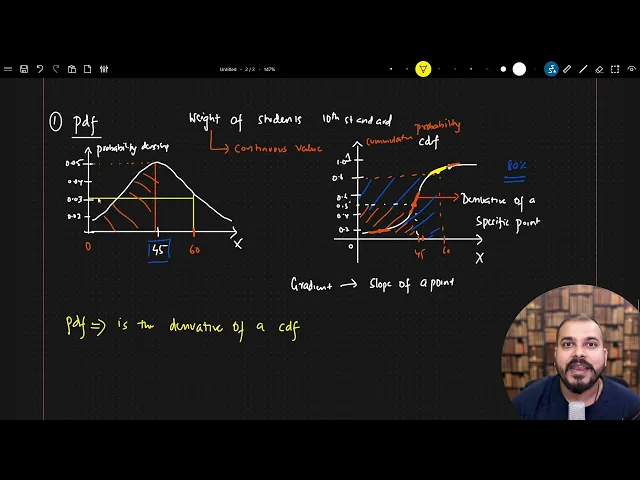 Untitled - 2 / 2 • 147%
① Pdf
Weight of students 10th standard
→ Continuous value
probability density
0.05
0.04
0.03
0.02
0
45
60
X
cumulative probability
cdf
1.0
0.8
0.6
0.5
0.4
0.2
0
45
60
X
80%
Derivative of a
specific point
Gradient → slope of a point
Pdf => is the derivative of a cdf